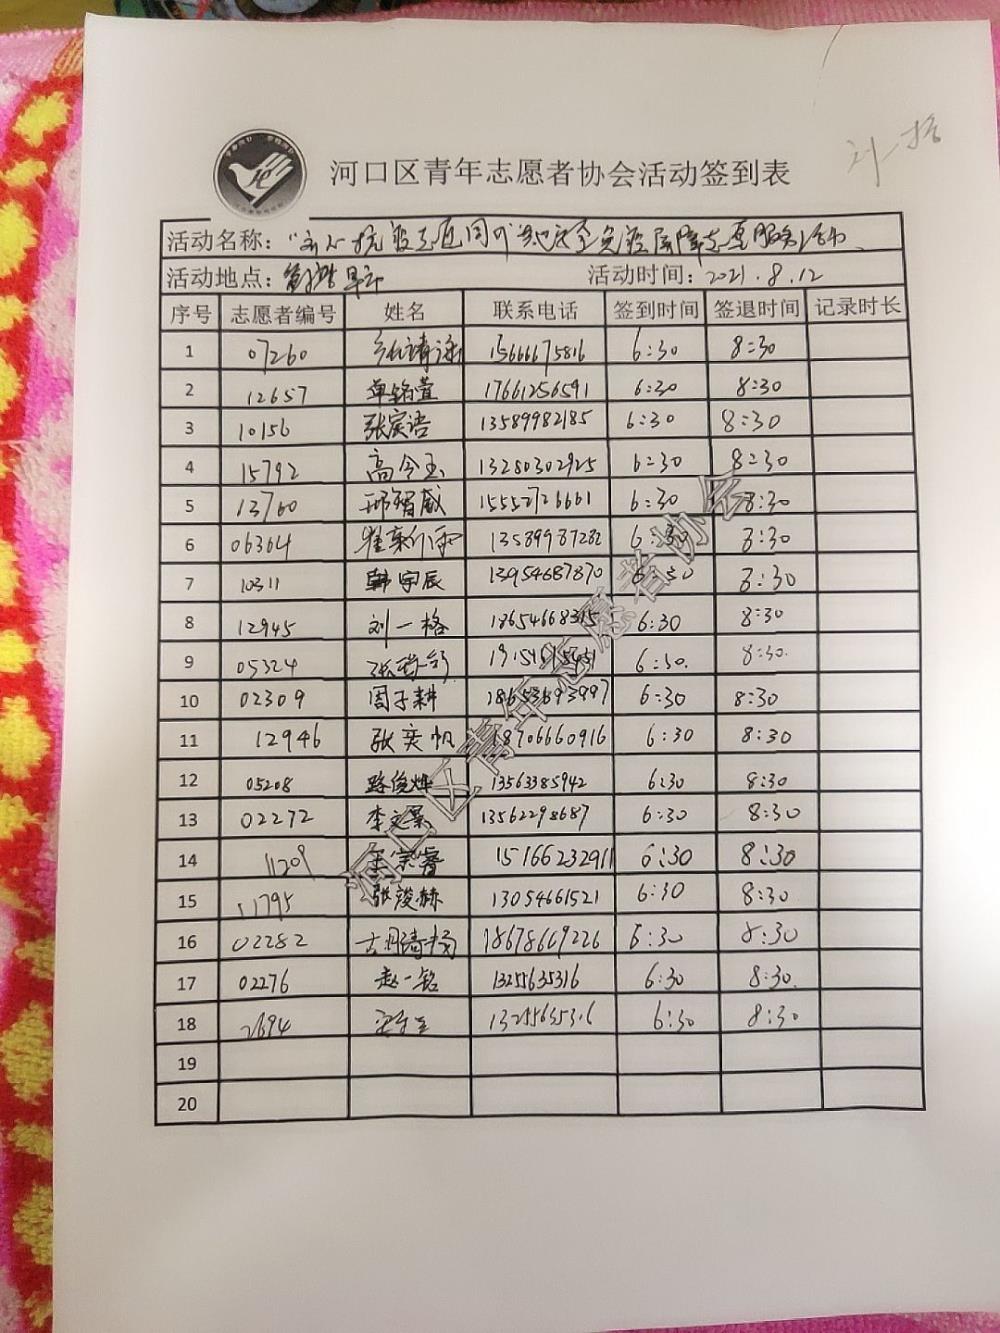 刘一格
河口区青年志愿者协会活动签到表
活动名称：
活动地点： 早市 活动时间：2021.8.12
序号 志愿者编号 姓名 联系电话 签到时间 签退时间 记录时长
1 07260 15666675816 6:30 8:30
2 12657 单铭萱 17661256591 6:30 8:30
3 10156 张宸语 13589982185 6:30 8:30
4 15792 高令玉 13280302925 6:30 8:30
5 13760 邢智威 15552726661 6:30 8:30
6 06364 13589987282 6:30 8:30
7 10311 韩宇辰 13954687870 6:30 8:30
8 12945 刘一格 18654668315 6:30 8:30
9 05324 6:30. 8:30.
10 02309 周子耕 18653693997 6:30 8:30
11 12946 张奕帆 18706660916 6:30 8:30
12 05208 路俊烨 13563385942 6:30 8:30
13 02272 李文景 13562298687 6:30 8:30
14 11209 王宗睿 15166232911 6:30 8:30
15 11795 张浚赫 13054661521 6:30 8:30
16 02282 18678669226 6:30 8:30
17 02276 赵一铭 13255635316 6:30 8:30.
18 2694 13255635316 6:30 8:30
19
20
河口区青年志愿者协会